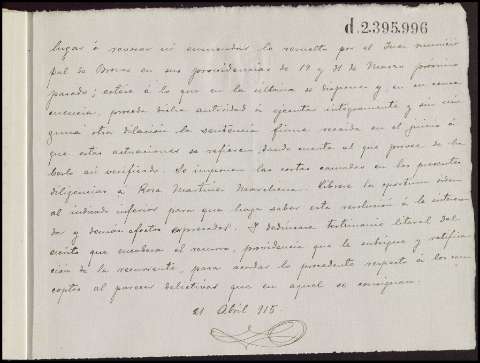 d.2.395.996
lugar á revocar ni enmendar lo resuelto por el Juez munici-
pal de en sus providencias de 19 y 31 de Marzo próximo
pasado; estése á lo que en la última se dispone y, en su conse-
cuencia, proceda dicha autoridad á ejecutar integramente y sin nin-
guna otra dilación la sentencia firme recaida en el juicio á
que estas actuaciones se refieren, dando cuenta al que provee de ha-
berlo así verificado. Se imponen las costas causadas en las presentes
diligencias á Rosa Martínez Marchena. Líbrese la oportuna orden
al indicado inferior para que haga saber esta resolución á la interesa-
da y demás efectos expresados. Y dedúzcase testimonio literal del
escrito que encabeza el recurso, providencia que le subsigue y ratifica-
ción de la recurrente, para acordar lo procedente respecto á los con-
ceptos al parecer delictivos que en aquel se consignan.
21 Abril 915